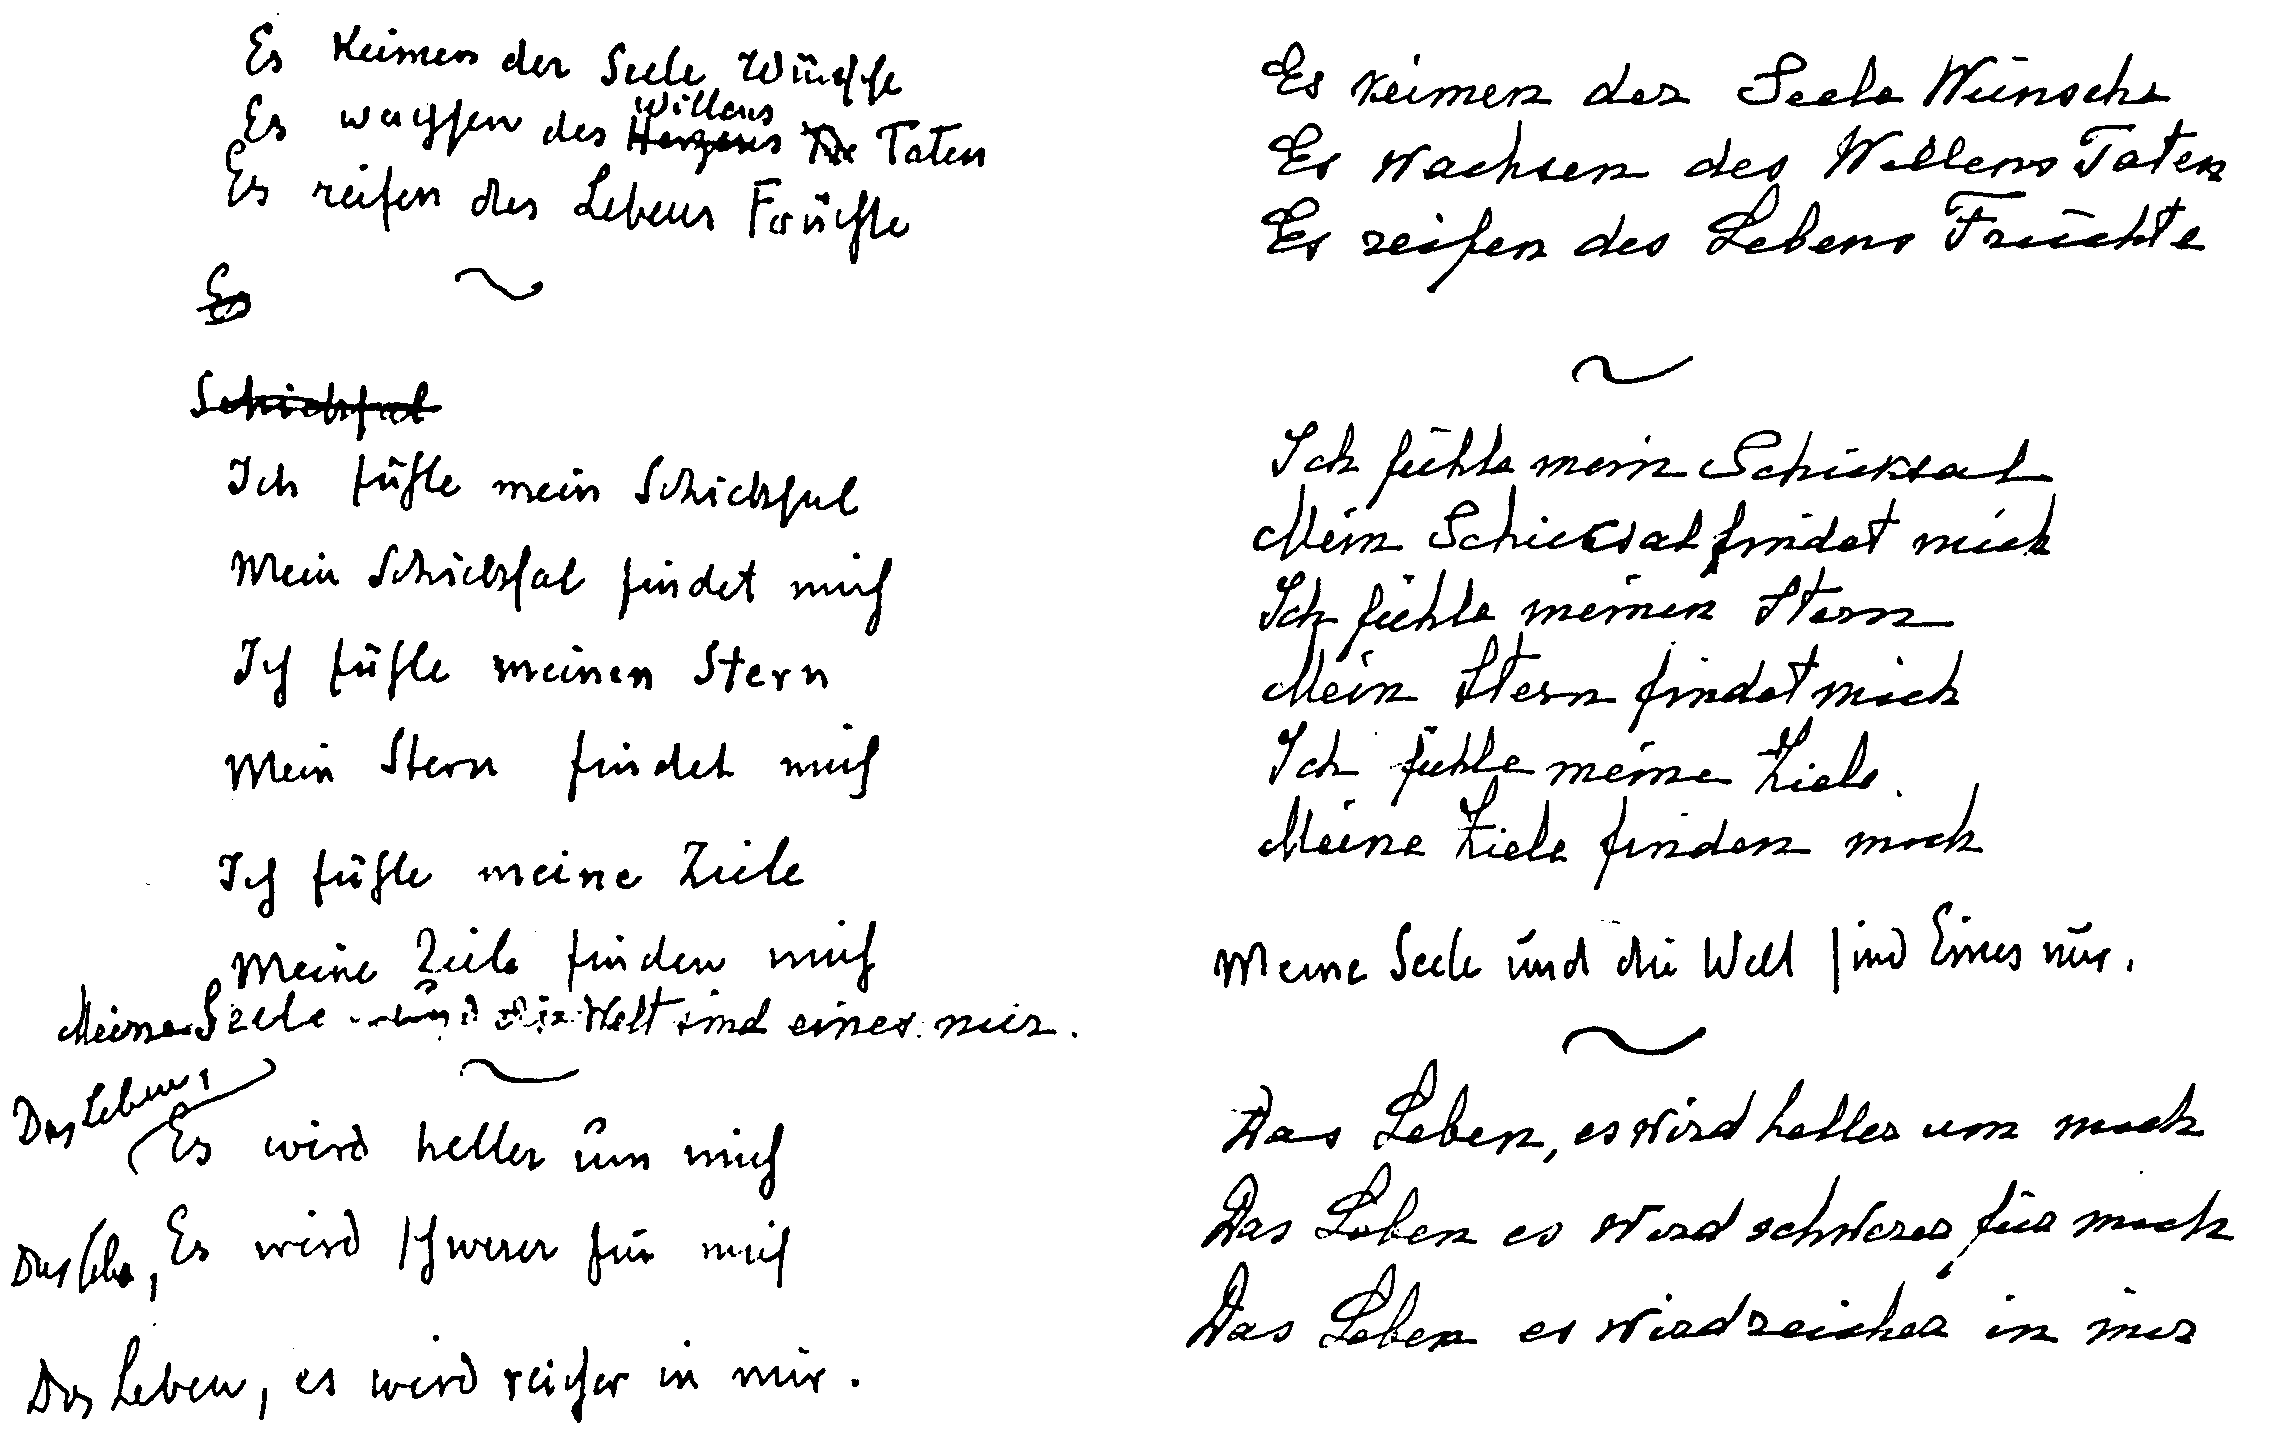 Es keimen der Seele Wünsche
Es wachsen des Willens
Herzens Taten
Es reifen des Lebens Früchte
Es
Schicksal
Ich fühle mein Schicksal
Mein Schicksal findet mich
Ich fühle meinen Stern
Mein Stern findet mich
Ich fühle meine Ziele
Meine Ziele finden mich
Meine Seele und die Welt sind eines nur.
Das Leben,
Es wird heller um mich
Das Leben, Es wird schwerer für mich
Das Leben, es wird reicher in mir.
Es keimen der Seele Wünsche
Es wachsen des Willens Taten
Es reifen des Lebens Früchte
Ich fühle mein Schicksal
Mein Schicksal findet mich
Ich fühle meinen Stern
Mein Stern findet mich
Ich fühle meine Ziele.
Meine Ziele finden mich
Meine Seele und die Welt sind Eines nur.
Das Leben, es wird heller um mich
Das Leben es wird schwerer für mich
Das Leben es wird reicher in mir